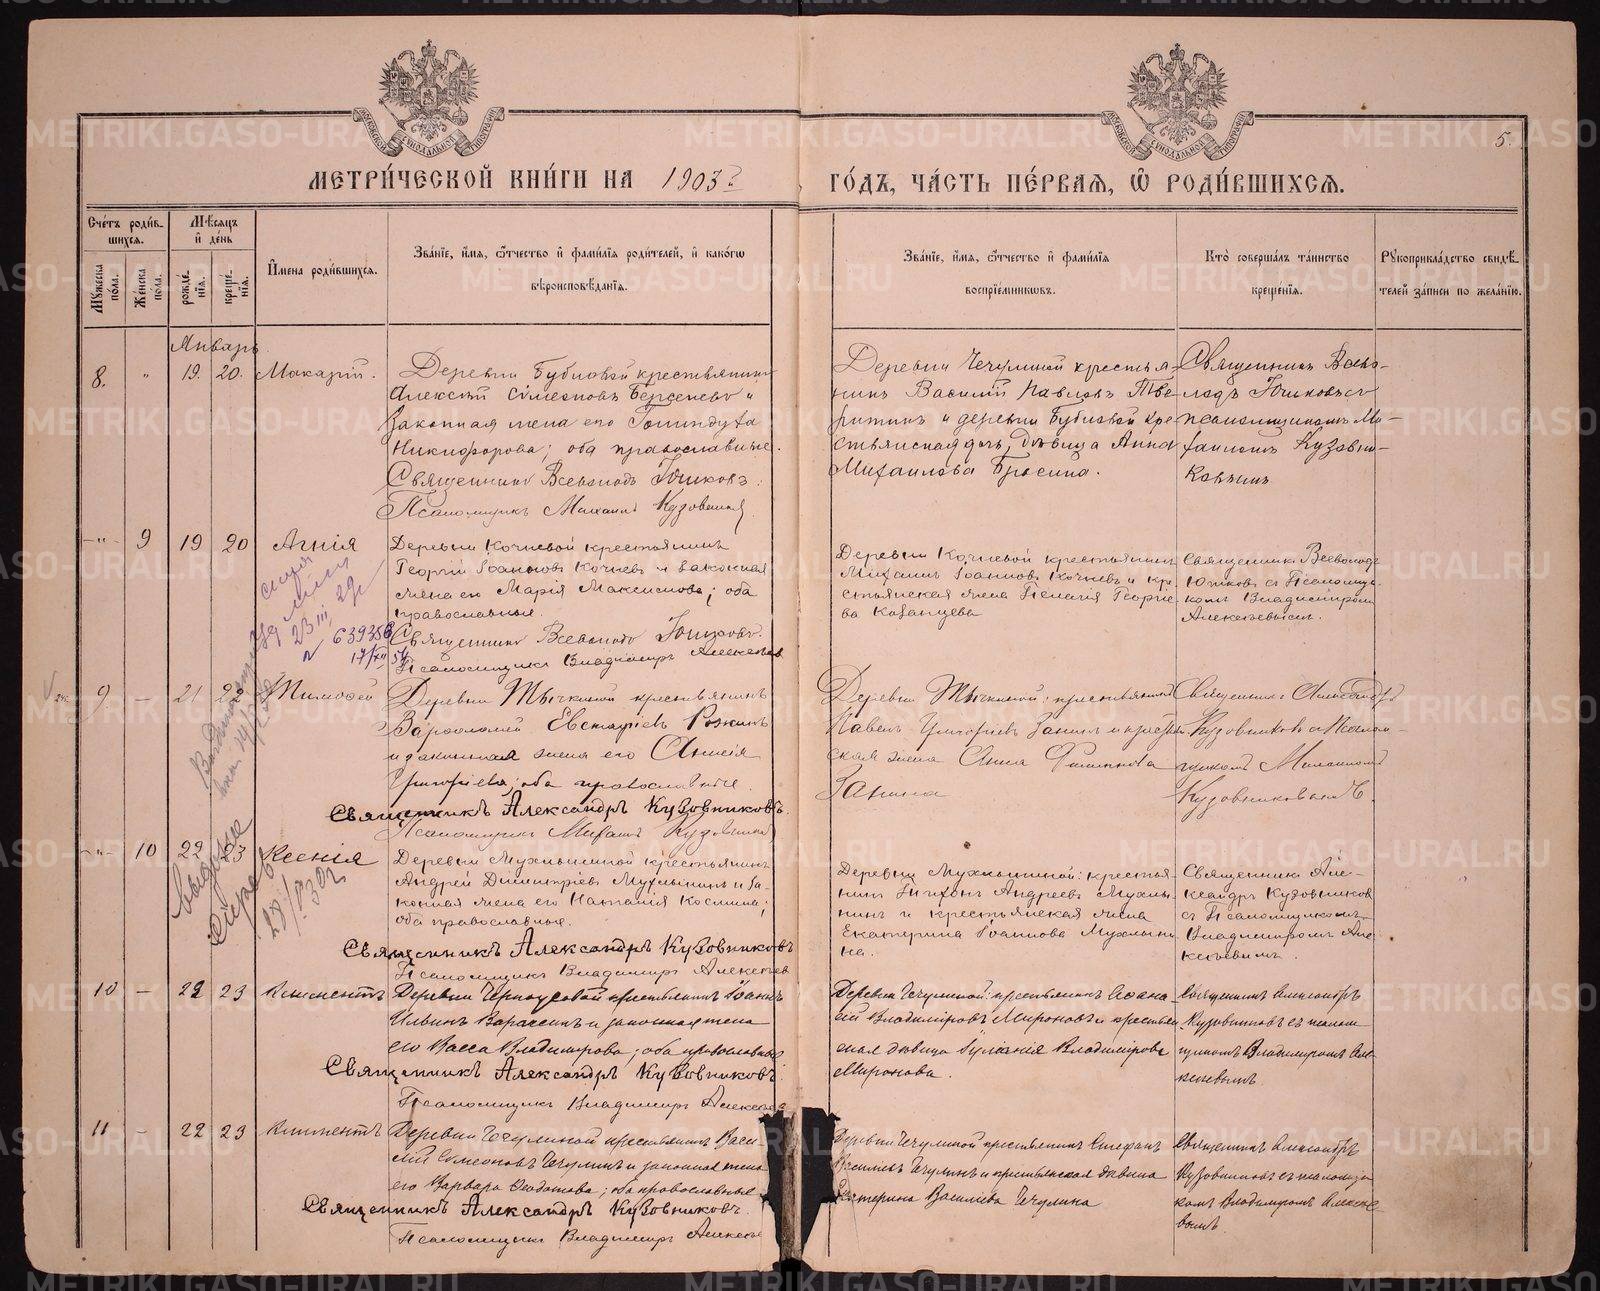 МЕТРИ́ЧЕСКОЙ КНИ́ГИ НА 1903 г
ГО́ДЪ, ЧА́СТЬ ПЕ́РВАЯ, Ѿ РОДИ́ВШИХСЯ.
5.
Сче́тъ роди́в-
шихся.
Мꙋ́жеска пола.
Же́нска по́ла.
Мѣ́сяцъ
и де́нь
рожде́-
нїя.
креще́-
нїя.
И҆мена роди́вшихся.
Зва́нїе, и҆́мя, ѻ҆́тчество и҆ фами́лїя роди́телей, и҆ како́гѡ
вѣроисповѣ́данїя.
Зва́нїе, и҆́мя, ѻ҆́тчество и҆ фами́лїя
воспрїе́мниковъ.
Кто̀ соверша́лъ та́инство
креще́нїя.
Рꙋкоприкла́дство свидѣ́-
телей за́писи по жела́нїю.
Январь
8. " 19. 20. Макарій.
Деревни Бубновой крестьянинъ
Алексій Симеоновъ и
законная жена его
Никифорова; оба православные.
Священникъ Всеволодъ Юшковъ.
Псаломщикъ Михаилъ Кузовниковъ
Деревни Чечулиной крестья-
нинъ Василій Павловъ Тве-
ритинъ и деревни Бубновой кре-
стьянская дочь, дѣвица Анна
Михаилова
Священникъ Всево-
лодъ Юшковъ съ
псаломщикомъ Ми-
хаиломъ Кузовни-
ковымъ
-"- 9 19 20 Агнія
Деревни Кочневой крестьянинъ
Георгій Іоанновъ Кочневъ и законная
жена его Марія Максимова; оба
православные.
Священникъ Всеволодъ Юшковъ.
Псаломщикъ Владиміръ Алексѣевъ
23 III 29 г
№ 639358
17/XII 54
Деревни Кочневой крестьянинъ
Михаилъ Іоанновъ Кочневъ и кре-
стьянская жена Пелагія Георгіе-
ва Казанцева
Священникъ Всеволодъ
Юшковъ съ Псаломщи-
комъ Владиміромъ
Алексѣевымъ.
9 - 21 22 Тимофей
Деревни Тычкиной крестьянинъ
Варфоломей Евстафіевъ
и законная жена его Анисія
Григоріева; оба православные.
Священникъ Александръ Кузовниковъ.
Псаломщикъ Михаилъ Кузовниковъ
Деревни Тычкиной: крестьянинъ
Павелъ Григоріевъ Занинъ и крестьян-
ская жена Анна Филиппова
Занина
Священникъ Александръ
Кузовниковъ съ Псалом-
щикомъ Михаиломъ
Кузовниковымъ.
-"- 10 22 23 Ксенія
Деревни Мухлыниной крестьянинъ
Андрей Димитріевъ Мухлынинъ и за-
конная жена его Наталія Космина;
оба православные.
Священникъ Александръ Кузовниковъ
Псаломщикъ Владиміръ Алексѣевъ
Деревни Мухлыниной: крестья-
нинъ Тихонъ Андреевъ Мухлы-
нинъ и крестьянская жена
Екатерина Іоаннова Мухлыни-
на.
Священникъ Але-
ксандръ Кузовниковъ
съ Псаломщикомъ
Владиміромъ Але-
ксѣевымъ.
10 - 22 23 Климентъ
Деревни Черноусовой крестьянинъ Іоаннъ
Ильинъ Вараксинъ и законная жена
его Васса Владимірова; оба православные
Священникъ Александръ Кузовниковъ.
Псаломщикъ Владиміръ Алексѣевъ
Деревни Чечулиной: крестьянинъ Афана-
сій Владиміровъ Мироновъ и крестьян-
ская дѣвица Іуліанія Владимірова
Миронова.
Священникъ Александръ
Кузовниковъ съ псалом-
щикомъ Владиміромъ Але-
ксѣевымъ.
11 - 22 23 Климентъ
Деревни Чечулиной крестьянинъ Васи-
лій Симеоновъ Чечулинъ и законная жена
его Варвара Феодотова; оба православные
Священникъ Александръ Кузовниковъ.
Псаломщикъ Владиміръ Алексѣевъ
Деревни Чечулиной крестьянинъ Стефанъ
Васильевъ Чечулинъ и крестьянская дѣвица
Екатерина Василіева Чечулина
Священникъ Александръ
Кузовниковъ съ псаломщи-
комъ Владиміромъ Алексѣе-
вымъ
METRIKI.GASO-URAL.RU